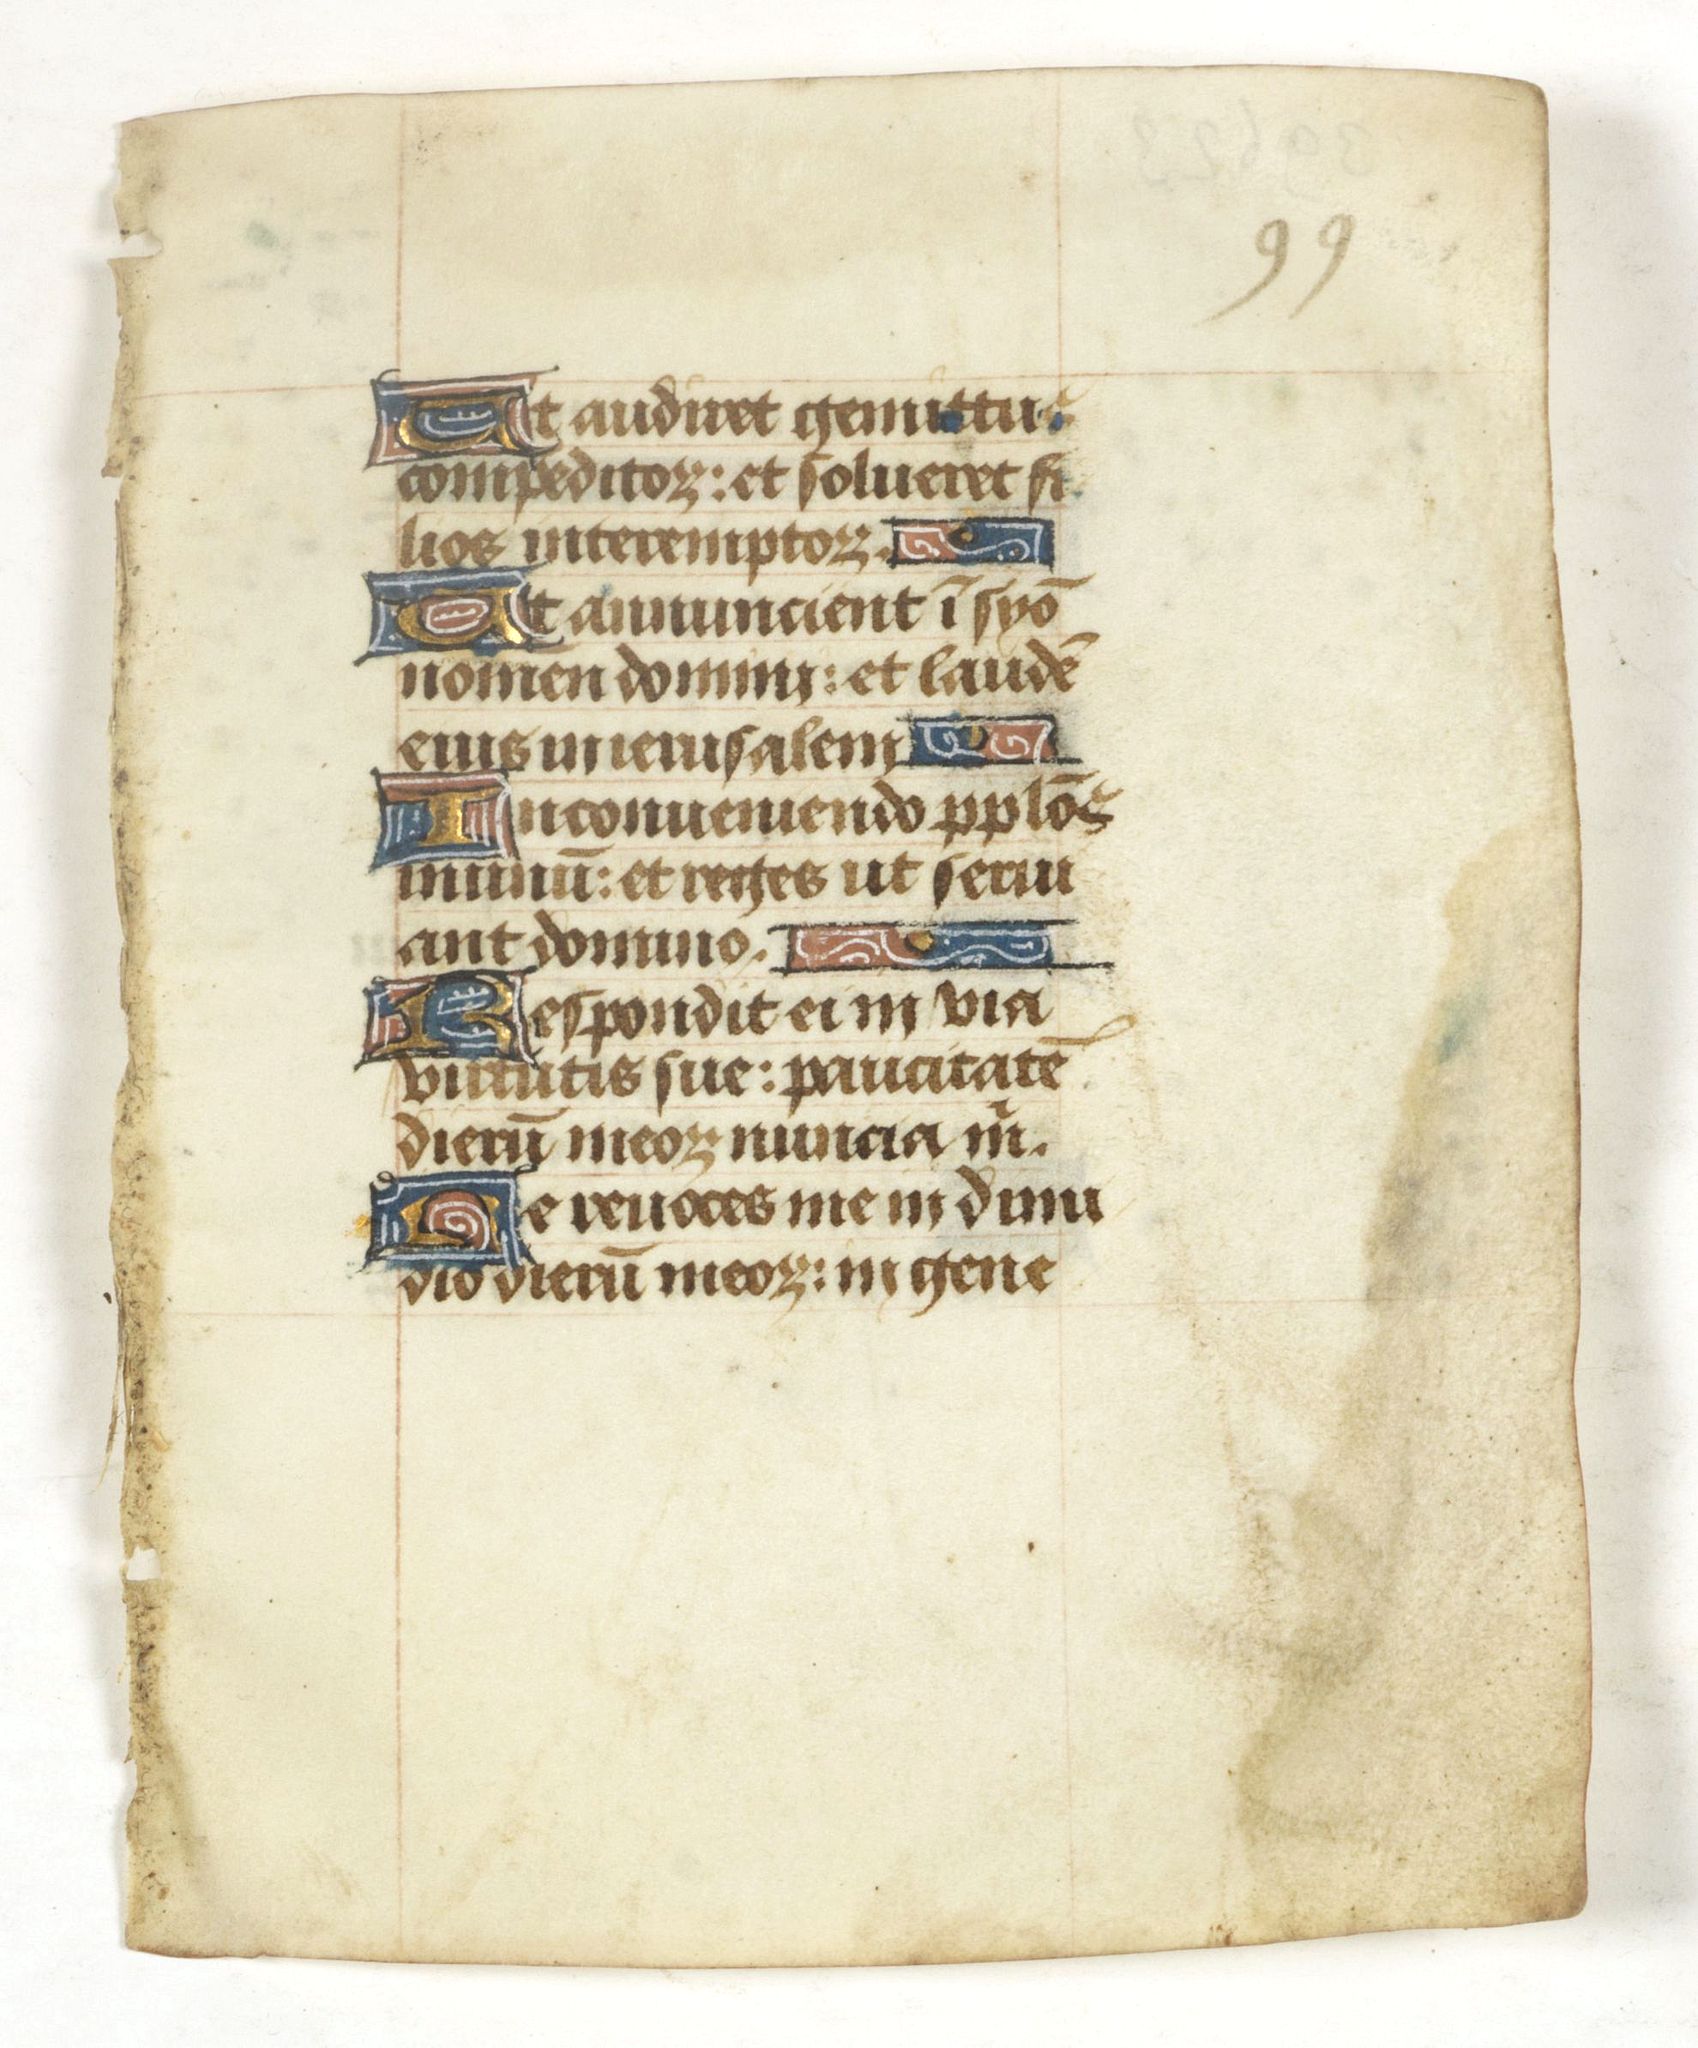 99
Ut audiret gemittus
compeditoꝝ: et solueret fi
lios interemptoꝝ.
Ut annuncient ī syō
nomen domini: et laudē
eius in ierusalem
In conueniendo pplōs
in unū: et reges ut serui
ant domino.
Respondit ei in via
virtutis sue: paucitatē
dierū meoꝝ nuncia m̄.
Ne reuoces me in dimi
dio dierū meoꝝ: in gene